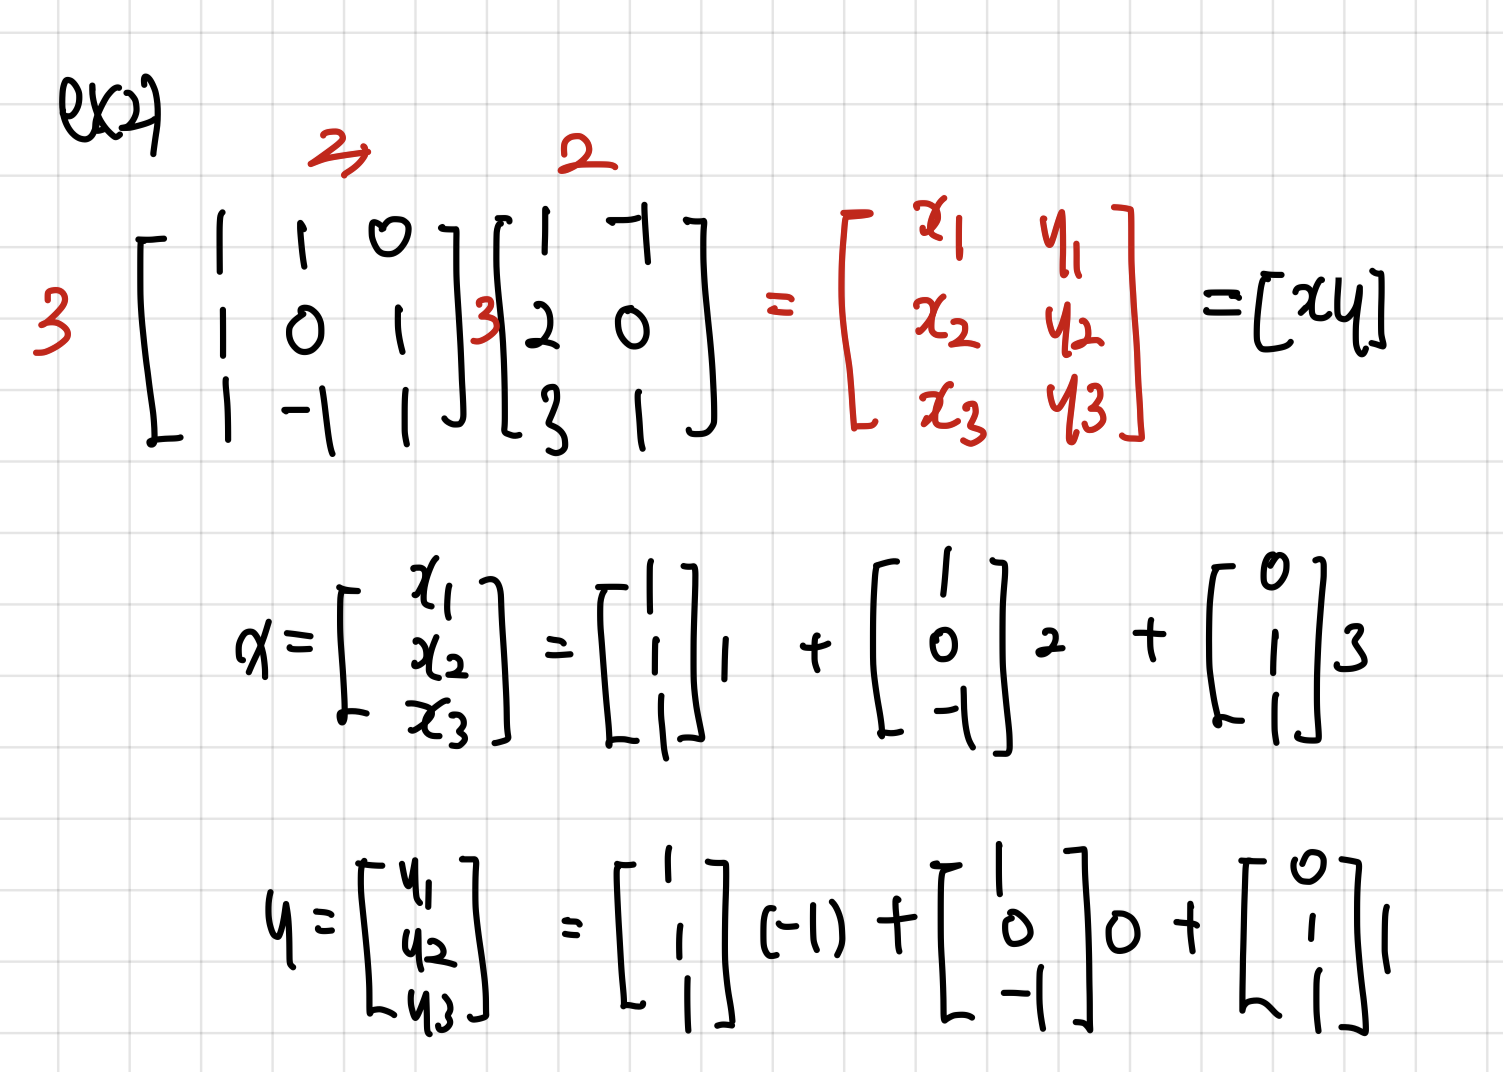 ex2)
3 2 2
[1 1 0; 1 0 1; 1 -1 1] 3 [1 -1; 2 0; 3 1] = [x₁ y₁; x₂ y₂; x₃ y₃] = [x y]
x = [x₁; x₂; x₃] = [1; 1; 1] 1 + [1; 0; -1] 2 + [0; 1; 1] 3
y = [y₁; y₂; y₃] = [1; 1; 1] (-1) + [1; 0; -1] 0 + [0; 1; 1] 1